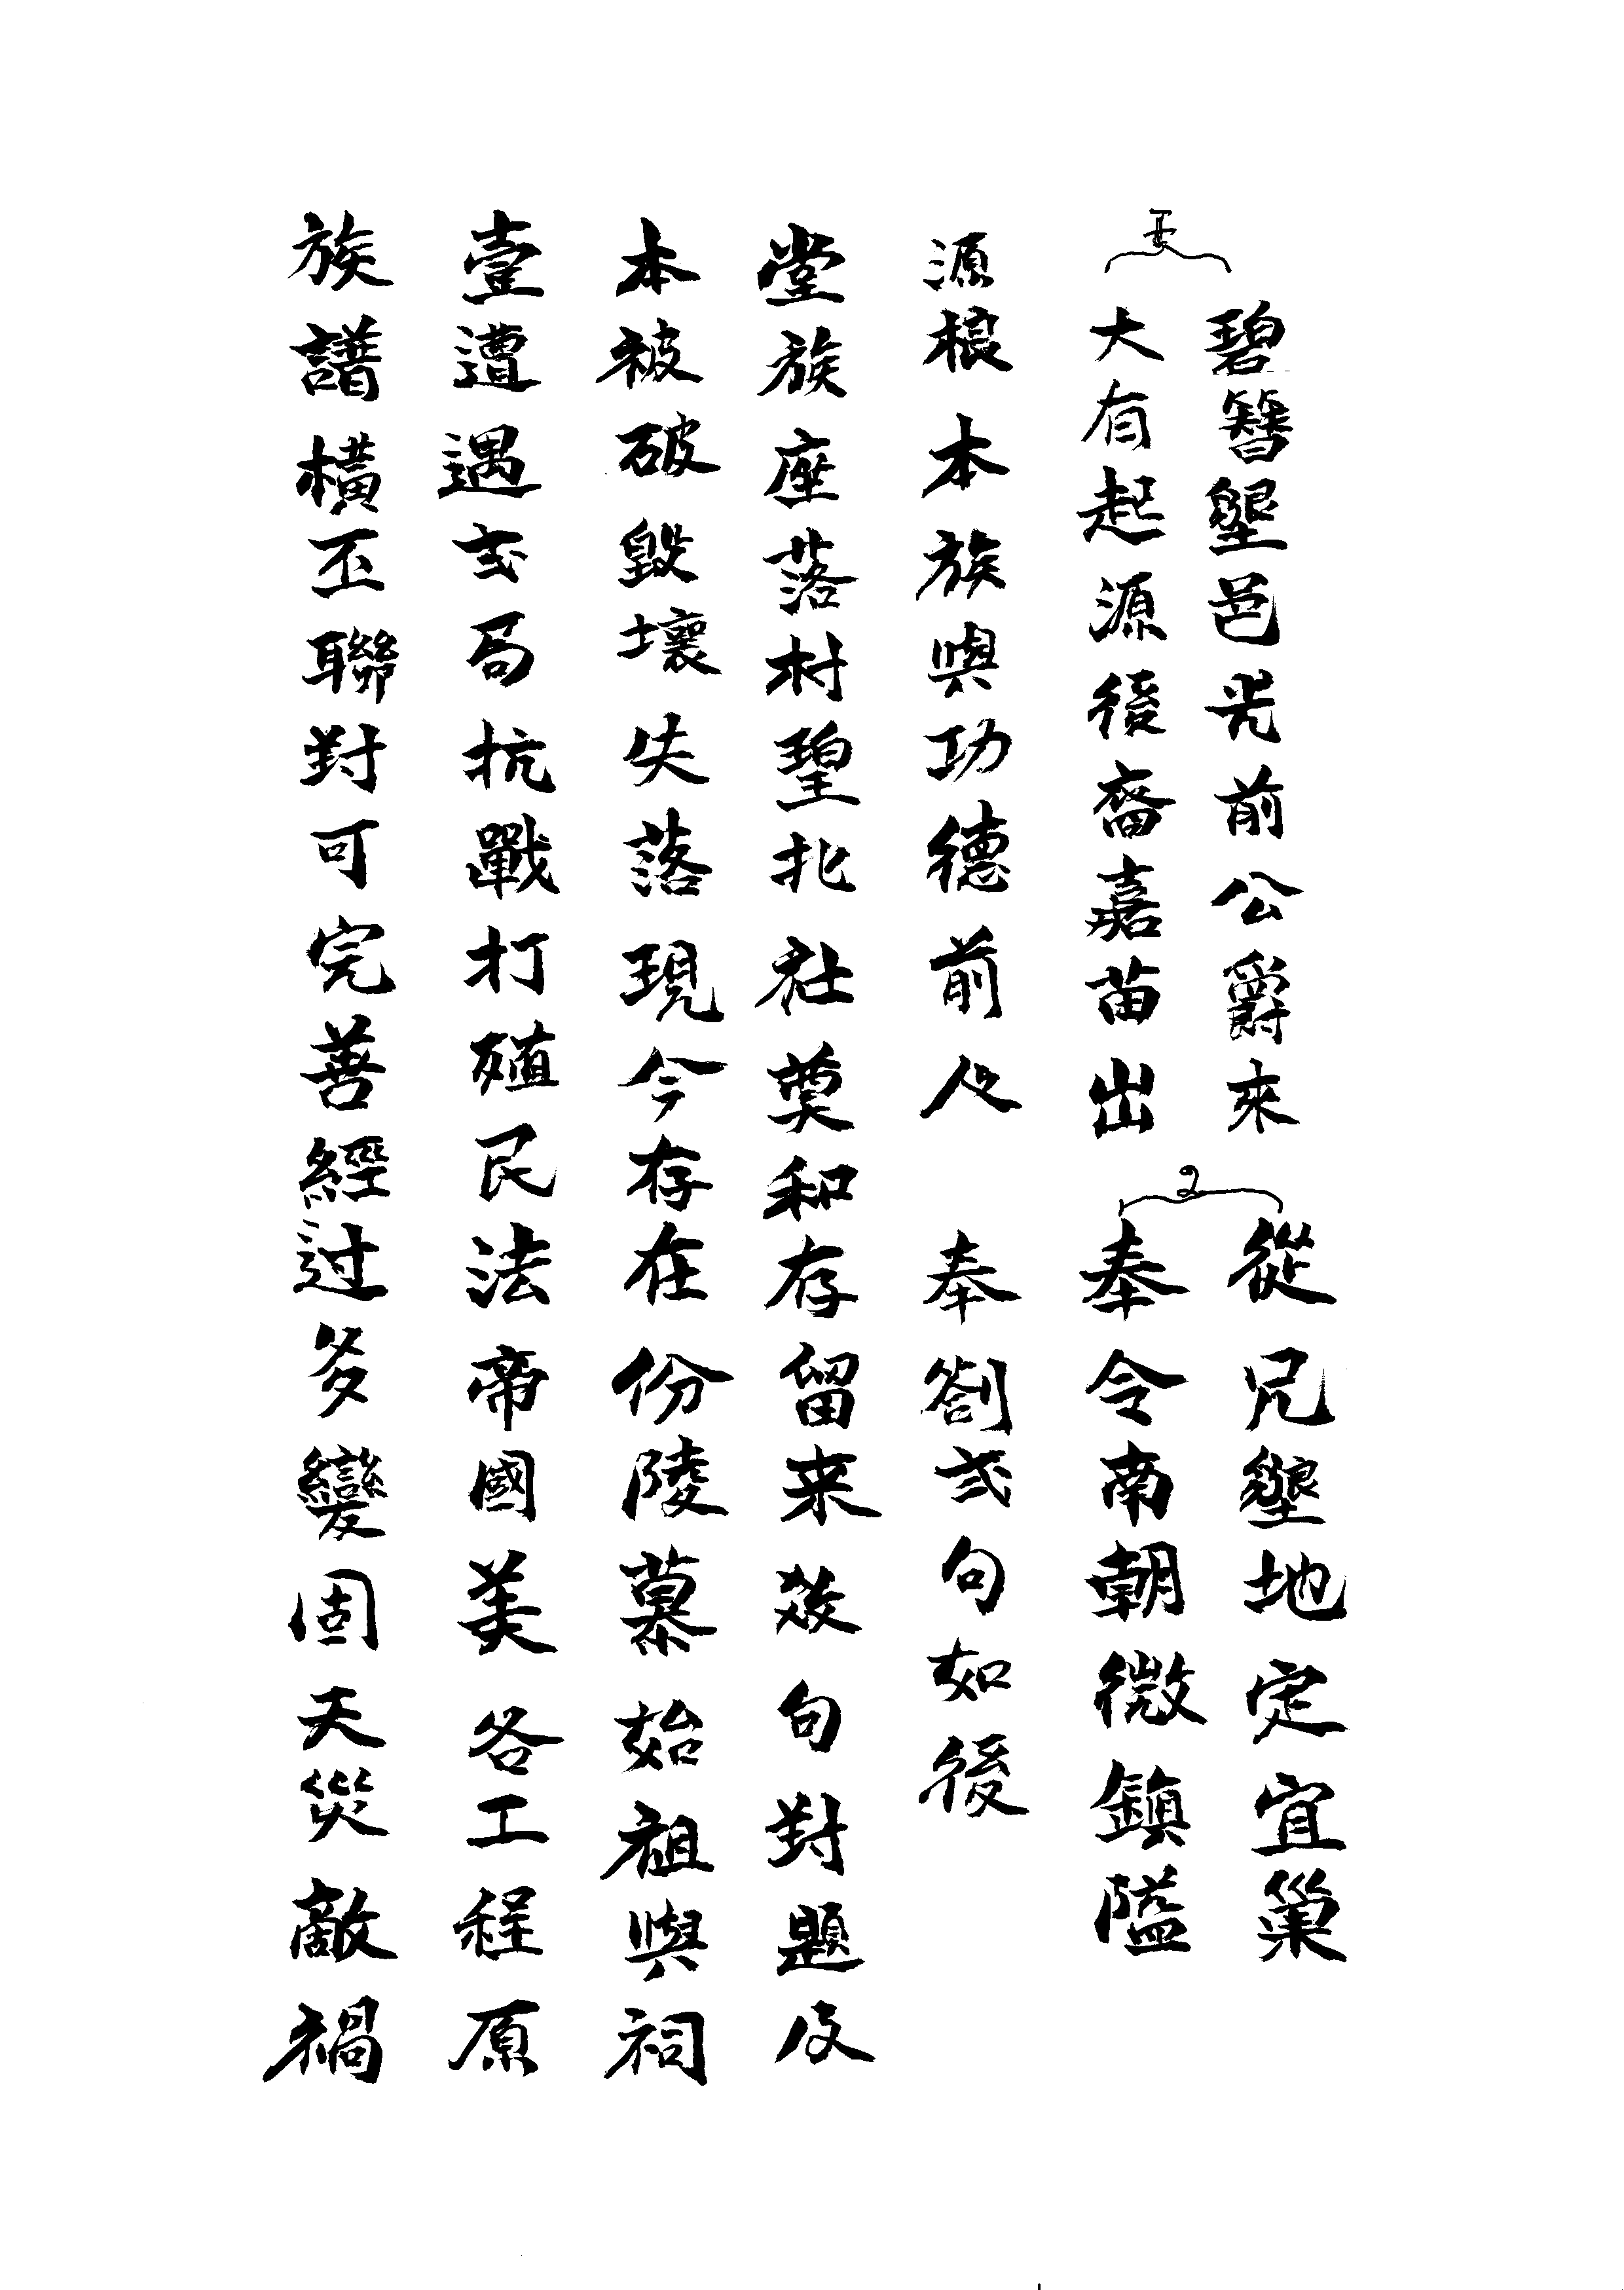 碧簪墾邑光前公爵來
大有起源後裔嘉苗出
2
從兄墾地定宜巢
奉令南朝微鎮隘
源根本族與功德前人
奉劄弍句如後
堂族座落村琞北社奠和存留来效句對題及
本被破毀壞失落現今存在份陵墓始祖與祠
壹遭遇弍局抗戰打殖民法帝國美各工程原
族譜橫丕聯對可完善經过多變固天災敵禍